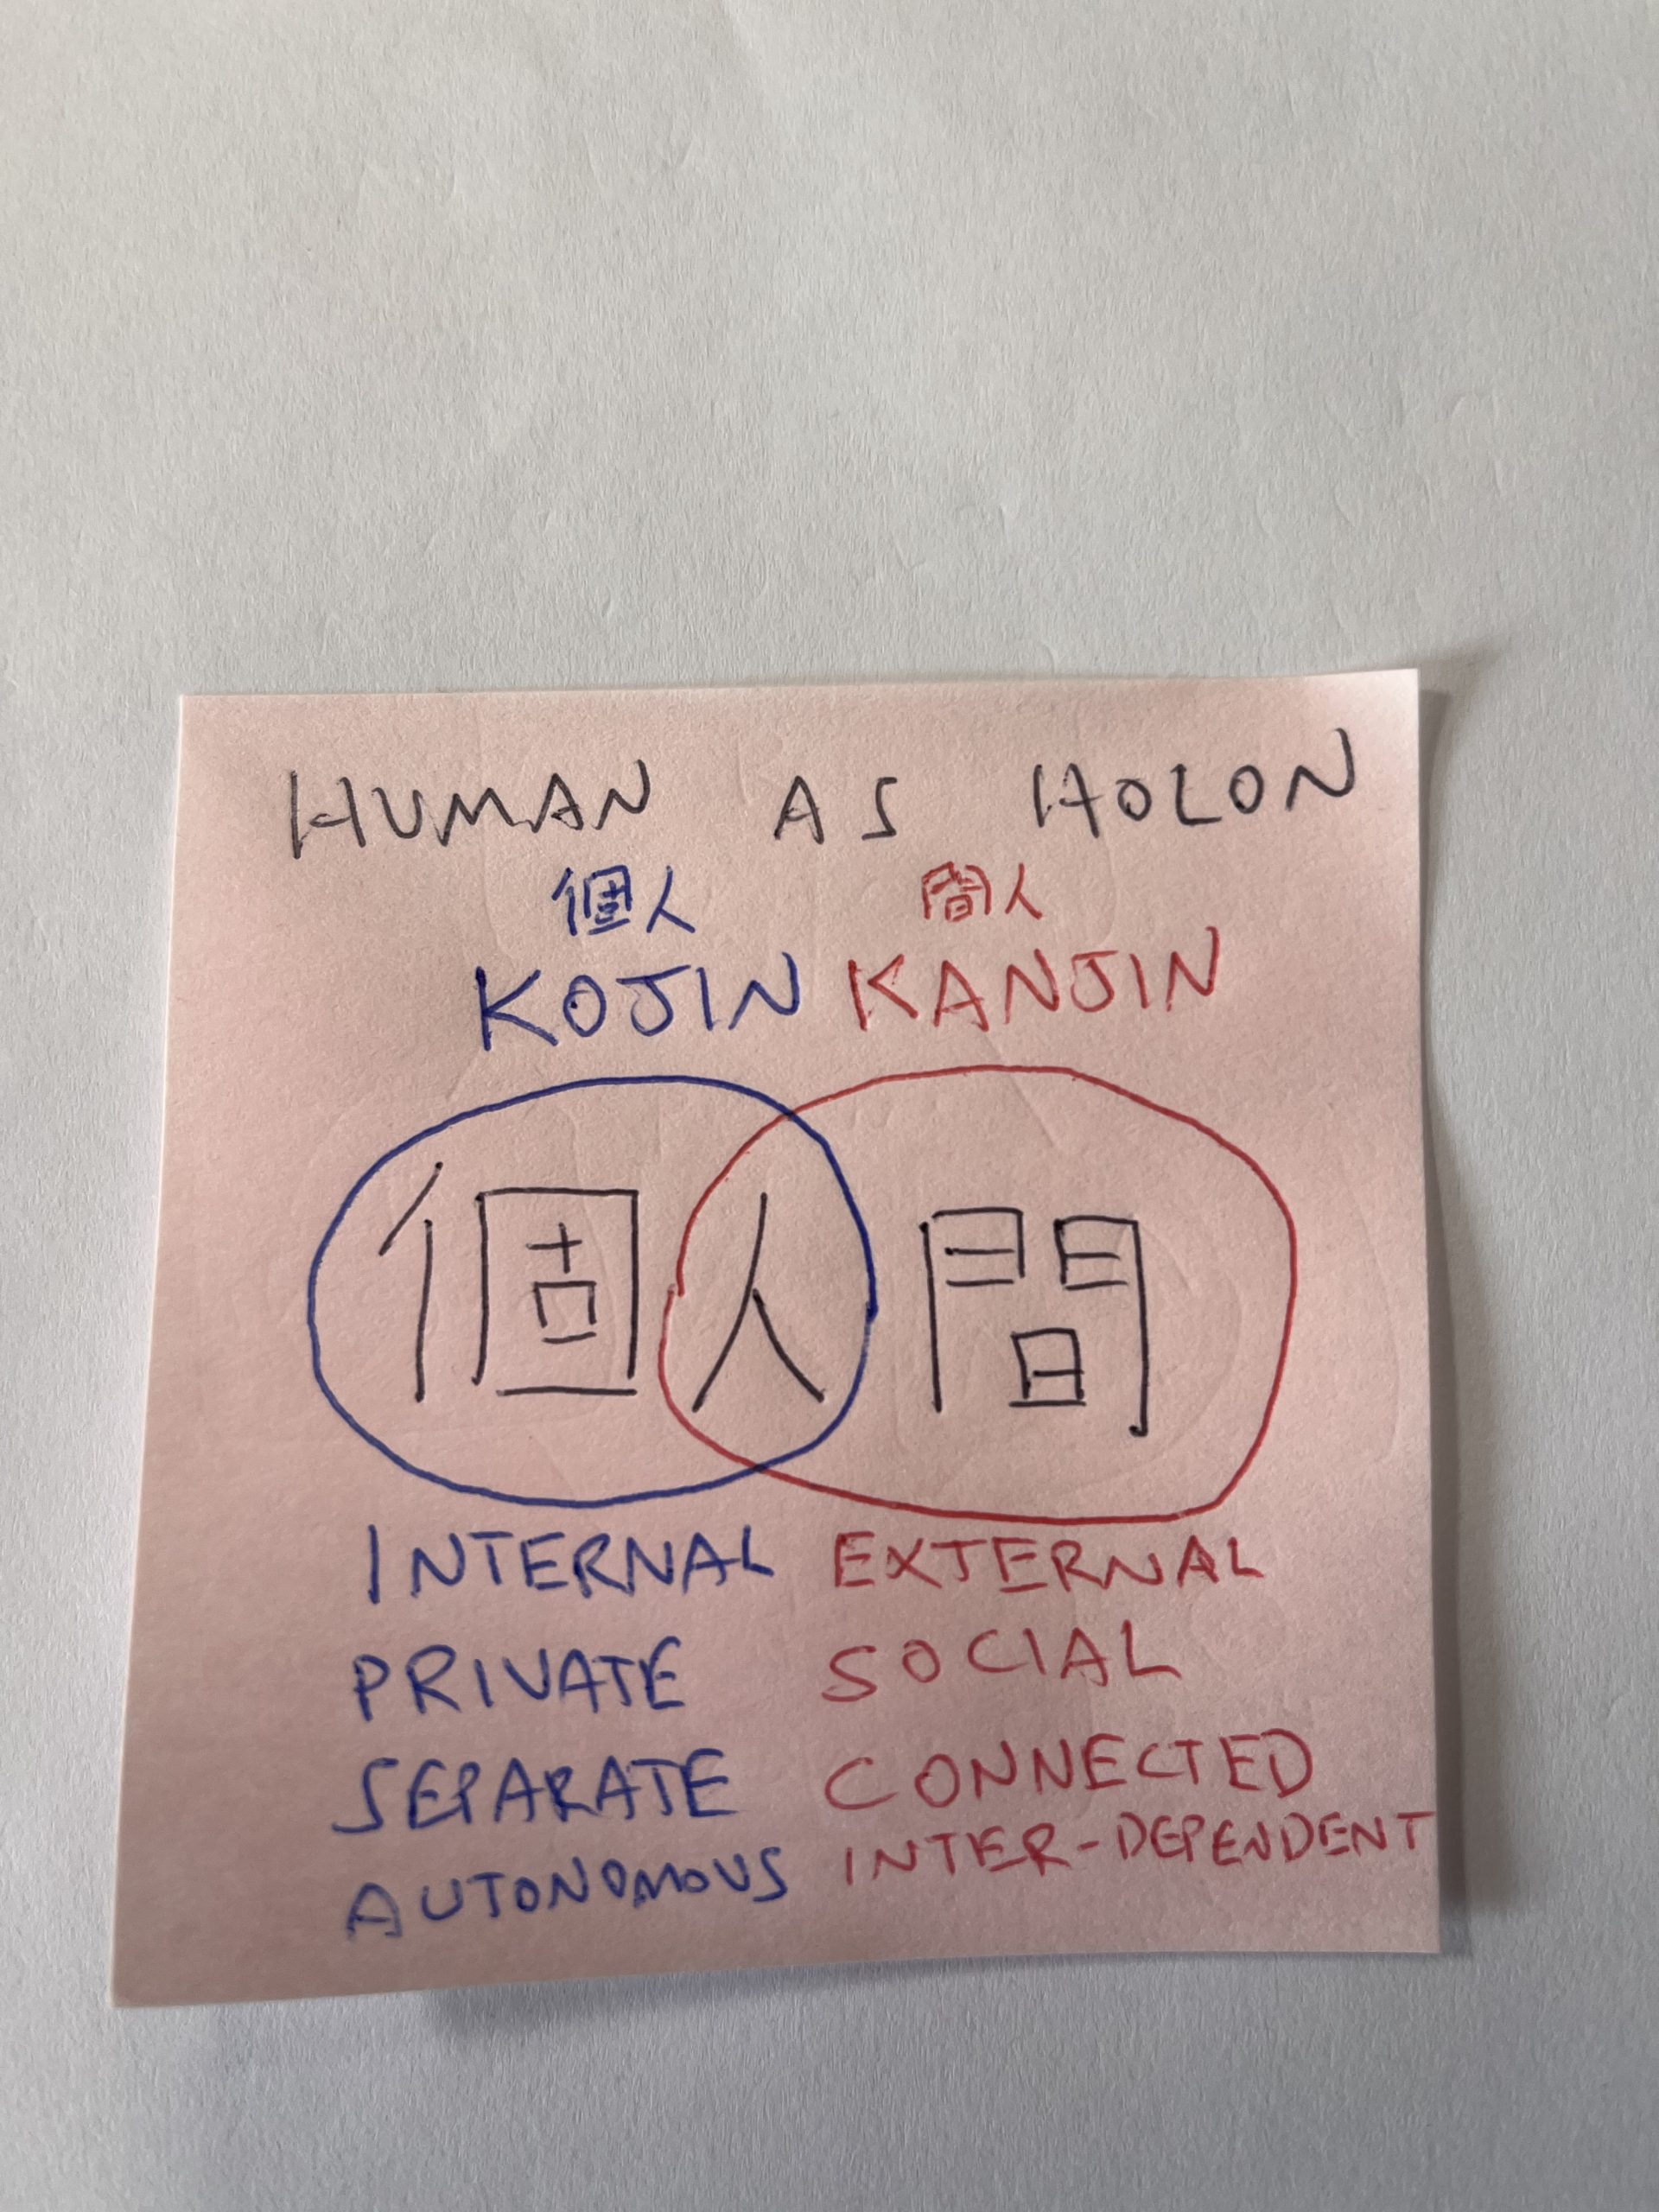 HUMAN AS HOLON
個人 間人
KOJIN KANJIN
個人間
INTERNAL EXTERNAL
PRIVATE SOCIAL
SEPARATE CONNECTED
AUTONOMOUS INTER-DEPENDENT